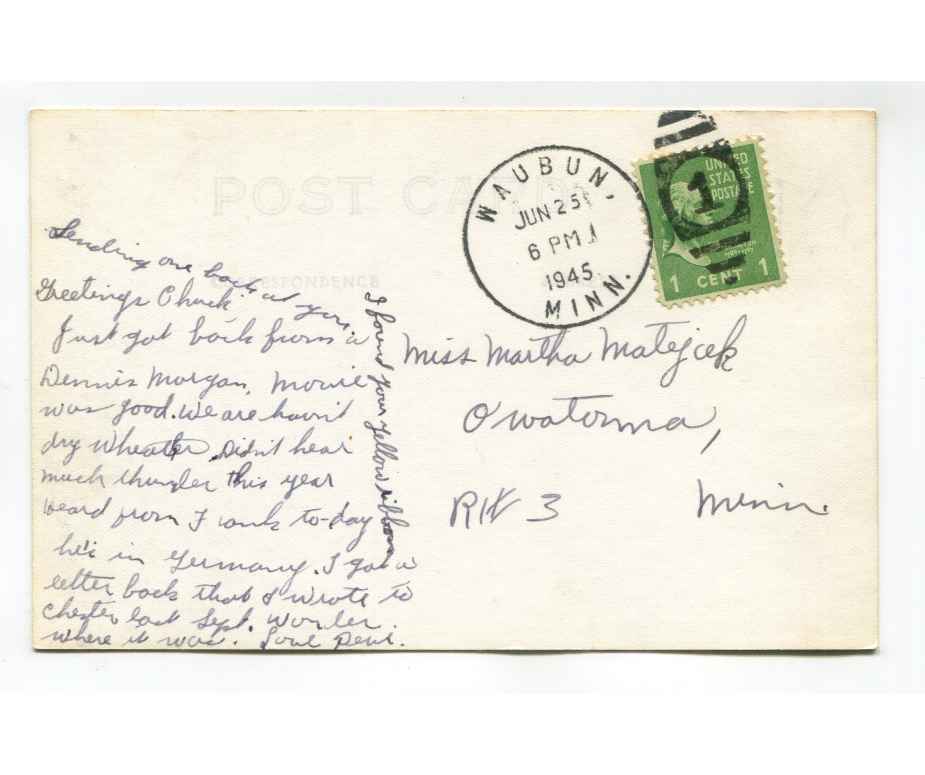 POST CARD
CORRESPONDENCE
WAUBUN,
JUN 25
6 PM
1945
MINN.
1
UNITED
STATES
POSTAGE
1 CENT 1
Sending one back at you.
Greetings Chuck
Just got back from a
Dennis Morgan, Movie
was good. We are havin't
dry Wheather. Didn't hear
much thunder this year
Heard from Frank to-day
he's in Germany. I got a
letter back that I wrote to
Chester last Sept. Wonder
where it was. Love
I found your yellow ribbon
Miss Martha Matejcek
Owatonna,
Rt 3 Minn.